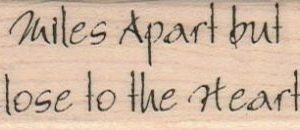 Miles Apart but
lose to the Heart